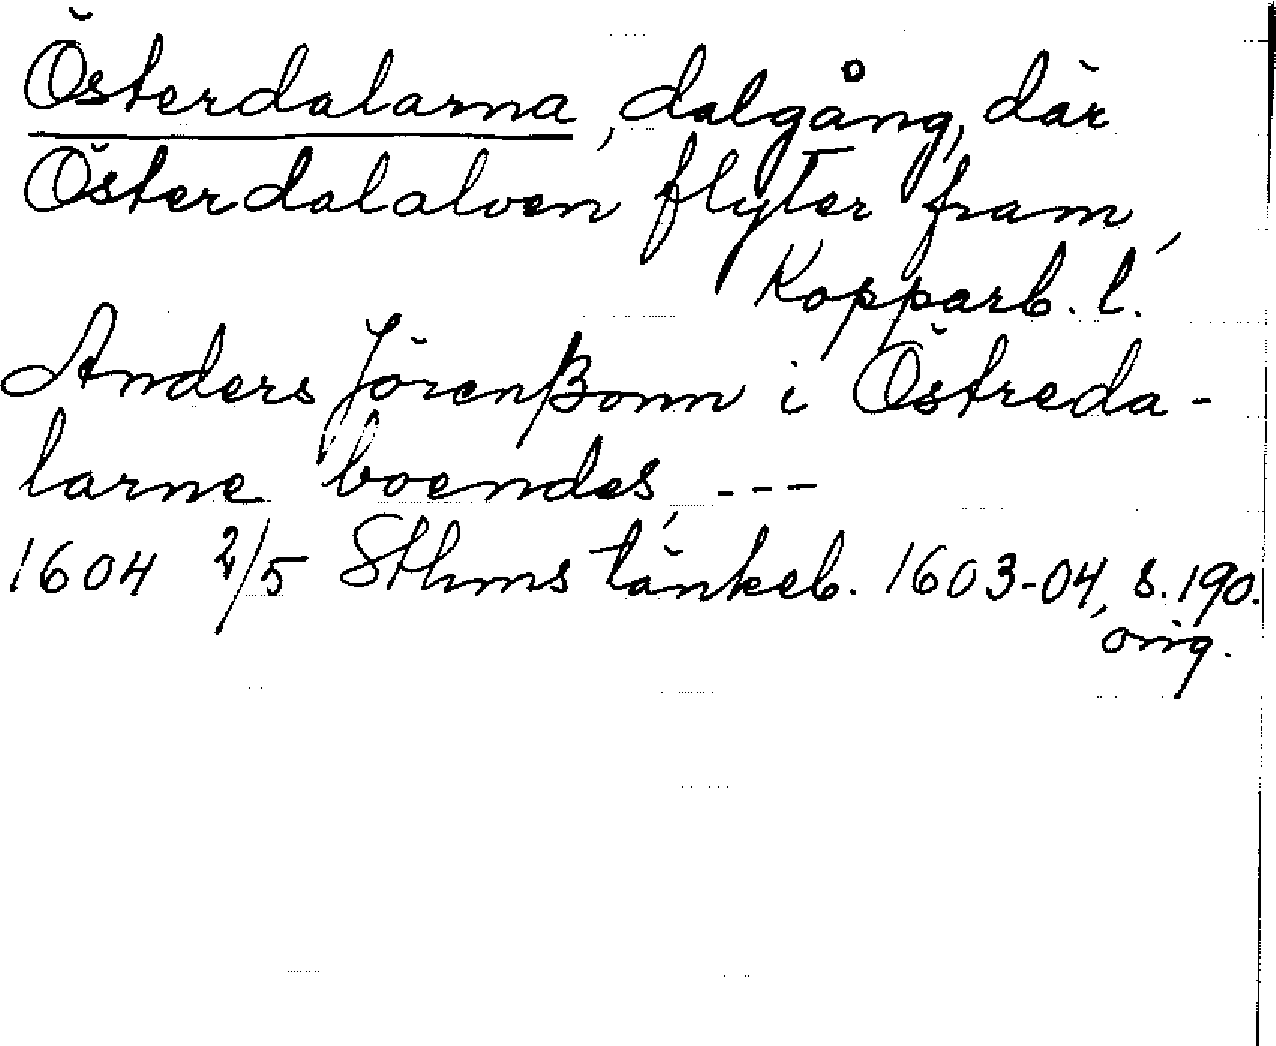 Österdalarna, dalgång, där
Österdalalven flyter fram,
Kopparb. l.
Anders Jörenßonn i Östreda-
larne boendes, ---
1604 2/5 Sthms tänkeb. 1603-04, s. 190.
orig.